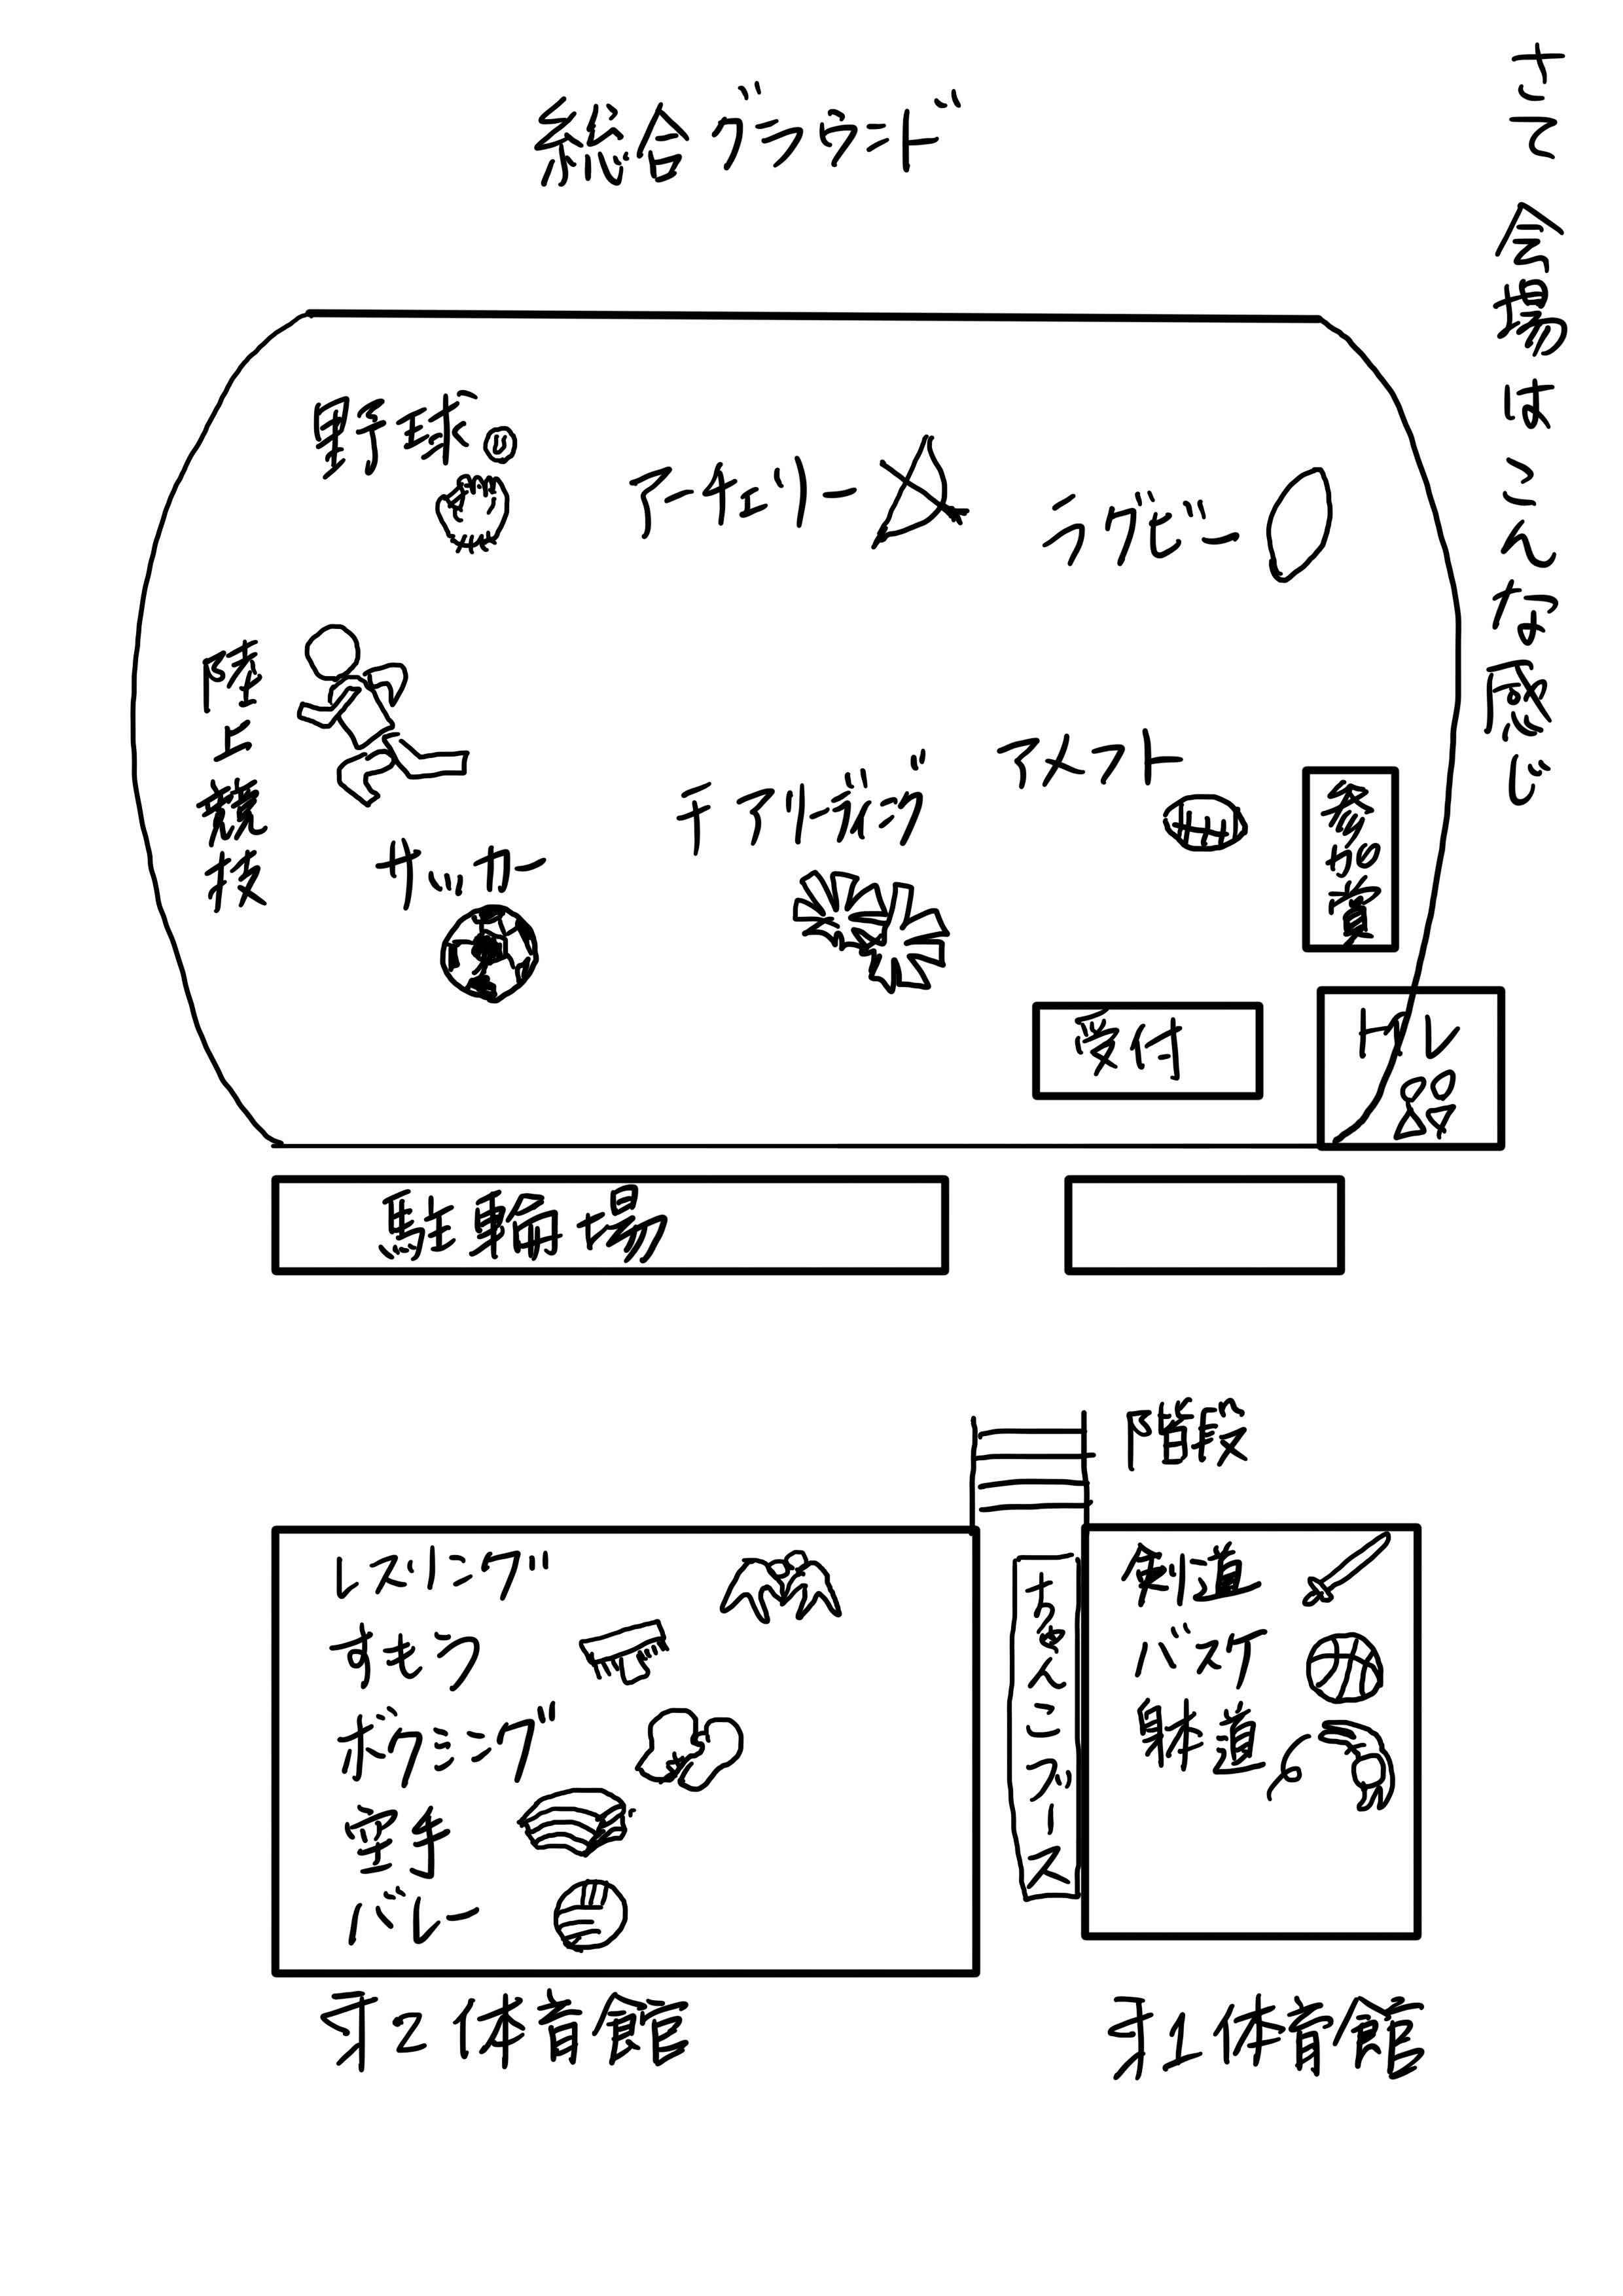 さて 会場はこんな感じ
総合グラウンド
野球
アーチェリー
ラグビー
陸上競技
サッカー
チアリーディング
アメフト
参加賞
受付
トイレ
駐輪場
階段
レスリング
すもう
ボクシング
空手
バレー
ちゃんこブース
剣道
バスケ
躰道
第2体育館
第1体育館